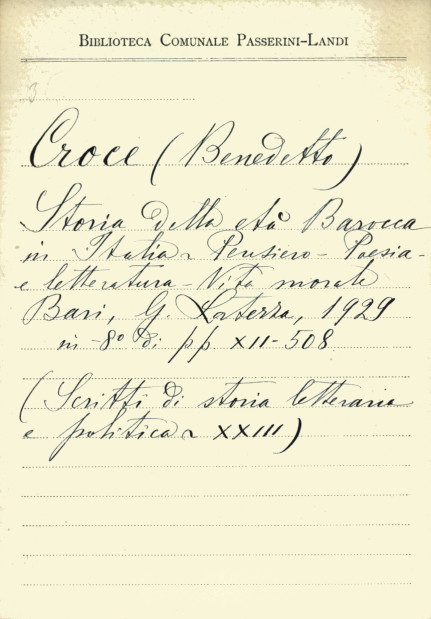 BIBLIOTECA COMUNALE PASSERINI-LANDI
3
Croce (Benedetto)
Storia della età Barocca
in Italia ~ Pensiero - Poesia -
e letteratura - Vita morale
Bari, G. Laterza, 1929
in -8º di pp XII-508
(Scritti di storia letteraria
e politica ~ XXIII)